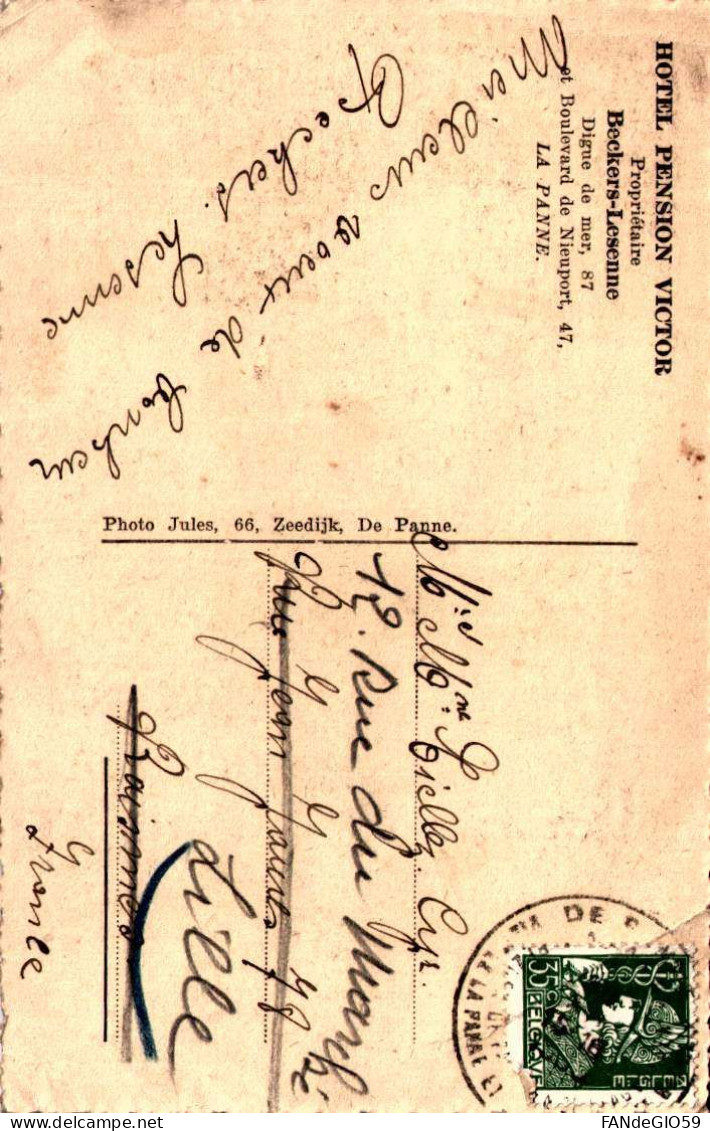 HOTEL PENSION VICTOR
Propriétaire
Beckers-Lesenne
Digue de mer, 87
et Boulevard de Nieuport, 47,
LA PANNE.
Meilleurs voeux de bonheur
Beckers. Lesenne
Photo Jules, 66, Zeedijk, De Panne.
Mr et Mme
12. Rue du Marché
Rue Jean Jaurès 48
Lille
Raismes
France
DE PANNE
LA PANNE
35c
BELGIQUE
BELGIË
www.delcampe.net
FANdeGIO59